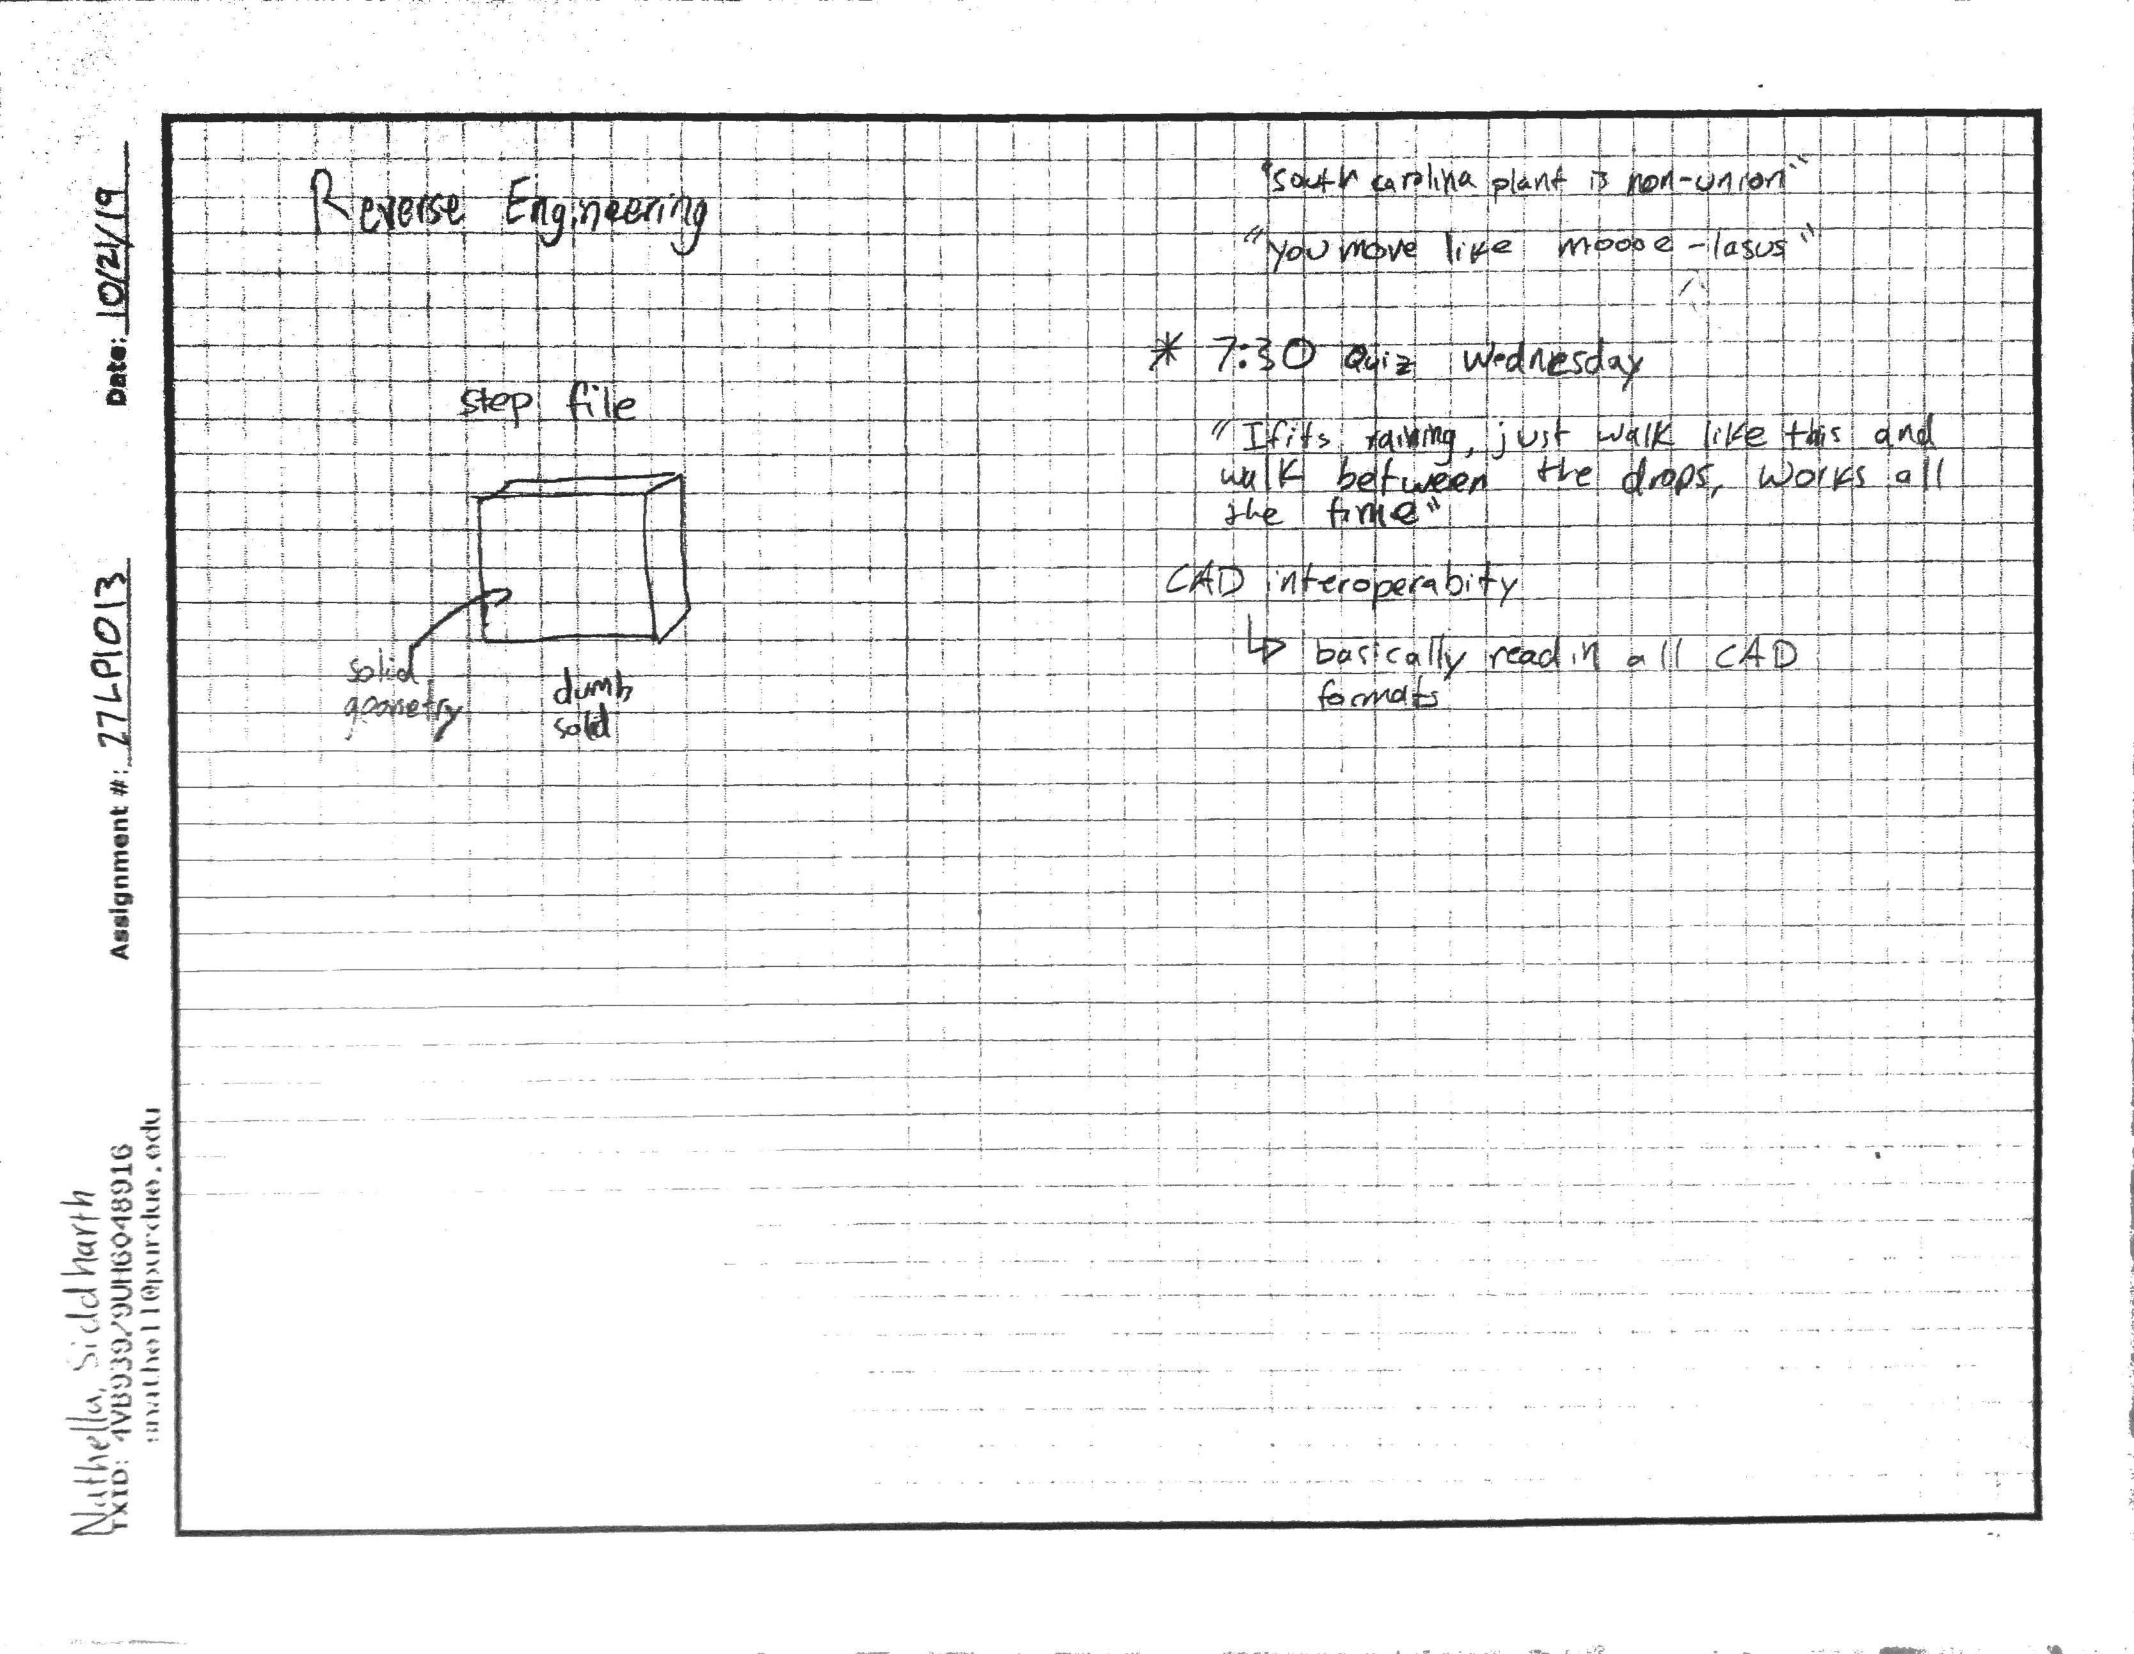 Date: 10/21/19
Assignment #: 27LP1013
Nathella, Siddharth
Reverse Engineering
step file
solid
geometry
dumb
solid
"South carolina plant is non-union"
"you move like moooe-lasus"
* 7:30 Quiz Wednesday
"If its raining, just walk like this and
walk between the drops, works all
the time"
CAD interoperabity
↳ basically read in all CAD
formats